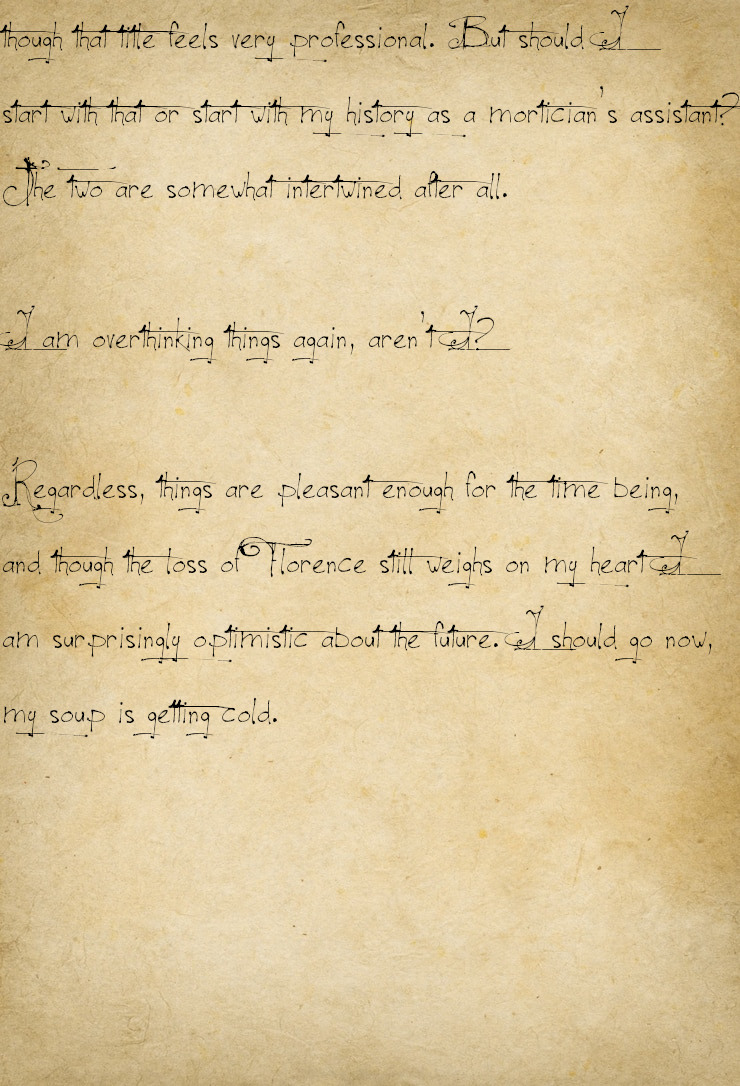 though that title feels very professional. But should I
start with that or start with my history as a mortician's assistant?
The two are somewhat intertwined after all.
I am overthinking things again, aren't I?
Regardless, things are pleasant enough for the time being,
and though the loss of Florence still weighs on my heart I
am surprisingly optimistic about the future. I should go now,
my soup is getting cold.